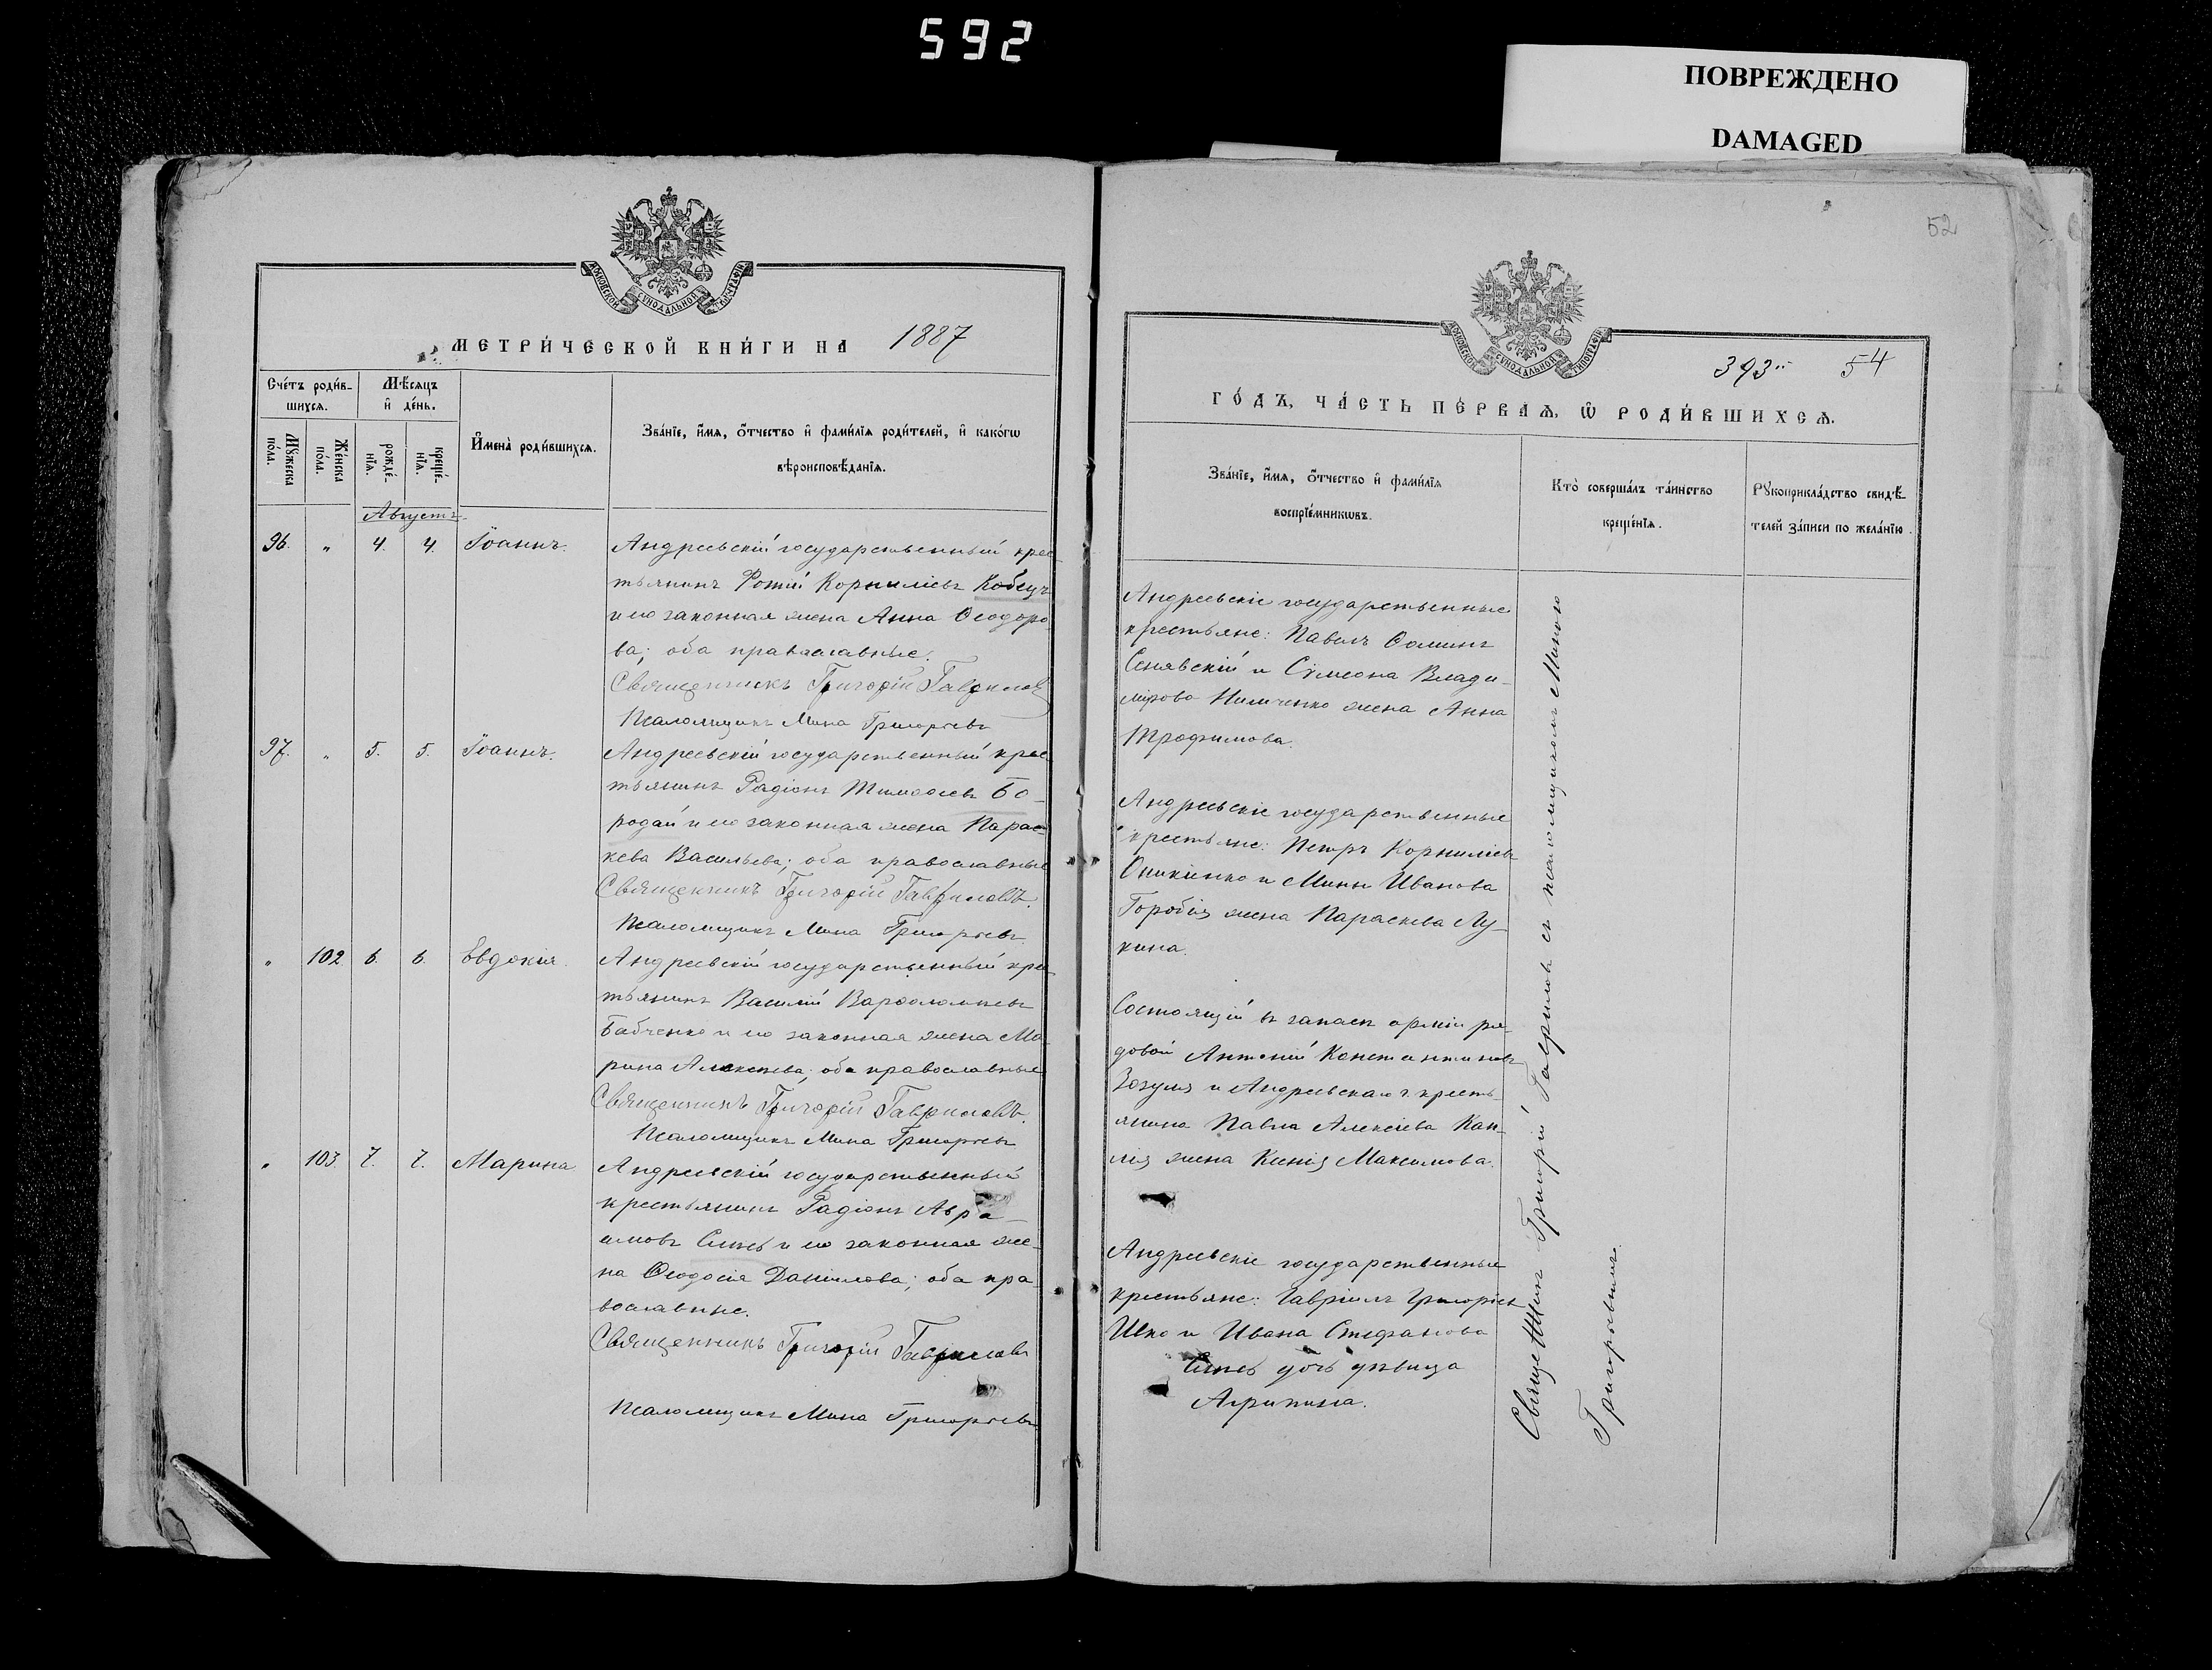 592
ПОВРЕЖДЕНО
DAMAGED
52
МОСКОВСКОЙ СѴНОДАЛЬНОЙ ТИПОГРАФІИ
МЕТРИ́ЧЕСКОЙ КНИ́ГИ НА 1887
Сче́тъ роди́в-
шихся.
Мѣ́сяцъ
и де́нь.
Мꙋжеска по́ла.
Же́нска по́ла.
рожде́-
нїѧ.
креще́-
нїѧ.
И҆мена̀ роди́вшихся.
Зва́нїе, и҆́мѧ, ѻ҆́тчество и҆ фами́лїѧ роди́телей, и҆ како́гѡ
вѣроисповѣ́данїѧ.
Августъ
96. " 4. 4. Іоаннъ.
Андреевскій государственный крес
тьянинъ Фотій Корниліевъ Кобецъ
и его законная жена Анна Ѳеодоро
ва; оба православные.
Священникъ Григорій Гавриловъ
Псаломщикъ Мина Григорьевъ
97. " 5. 5. Іоаннъ.
Андреевскій государственный крес
тьянинъ Радіонъ Тимоѳеевъ Бо-
родай и его законная жена Парас-
кева Васильева; оба православные
Священникъ Григорій Гавриловъ.
Псаломщикъ Мина Григорьевъ
" 102 6. 6. Евдокія.
Андреевскій государственный крес
тьянинъ Василій Варѳоломеевъ
Бабченко и его законная жена Ма-
рина Алексѣева; оба православные
Священникъ Григорій Гавриловъ.
Псаломщикъ Мина Григорьевъ
" 103 7. 7. Марина
Андреевскій государственный
крестьянинъ Радіонъ Авра-
амовъ и его законная же-
на Ѳеодосія Данилова; оба пра-
вославные.
Священникъ Григорій Гавриловъ
Псаломщикъ Мина Григорьевъ
МОСКОВСКОЙ СѴНОДАЛЬНОЙ ТИПОГРАФІИ
393 54
ГО́ДЪ, ЧА́СТЬ ПЕ́РВАѦ, Ѡ҆ РОДИ́ВШИХСѦ.
Зва́нїе, и҆́мѧ, ѻ҆́тчество и҆ фами́лїѧ
воспрїе́мникѡвъ.
Кто̀ соверша́лъ та́инство
креще́нїѧ.
Рꙋкоприкла́дство свидѣ́-
телей за́писи по жела́нїю.
Андреевскіе государственные
крестьяне: Павелъ Ѳоминъ
Сенявскій и Сѵмеона Влади-
мірова жена Анна
Трофимова.
Андреевскіе государственные
крестьяне: Петръ Корниліевъ
и Мины Иванова
Горобія жена Параскева Лу-
кина.
Состоящій въ запасѣ арміи ря-
довой Антоній Константиновъ
Зозуля и Андреевскаго г. кресть-
янина Павла Алексіева Кап-
лія жена Ксенія Максимова.
Андреевскіе государственные
крестьяне: Гавріилъ Григоріевъ
и Ивана Стефанова
дочь дѣвица
Агрипина.
Священникъ Григорій Гавриловъ съ псаломщикомъ Миною
Григорьевымъ.